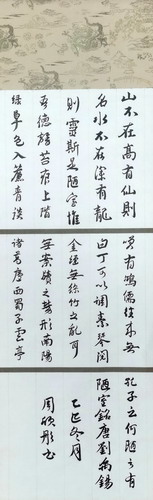 山不在高有仙則
名水不在深有龍
則靈斯是陋室惟
吾德馨苔痕上階
綠草色入簾青談
笑有鴻儒往來無
白丁可以調素琴閱
金經無絲竹之亂耳
無案牘之勞形南陽
諸葛廬西蜀子雲亭
孔子云何陋之有
陋室銘唐劉禹錫
乙巳冬月
周欣彤书